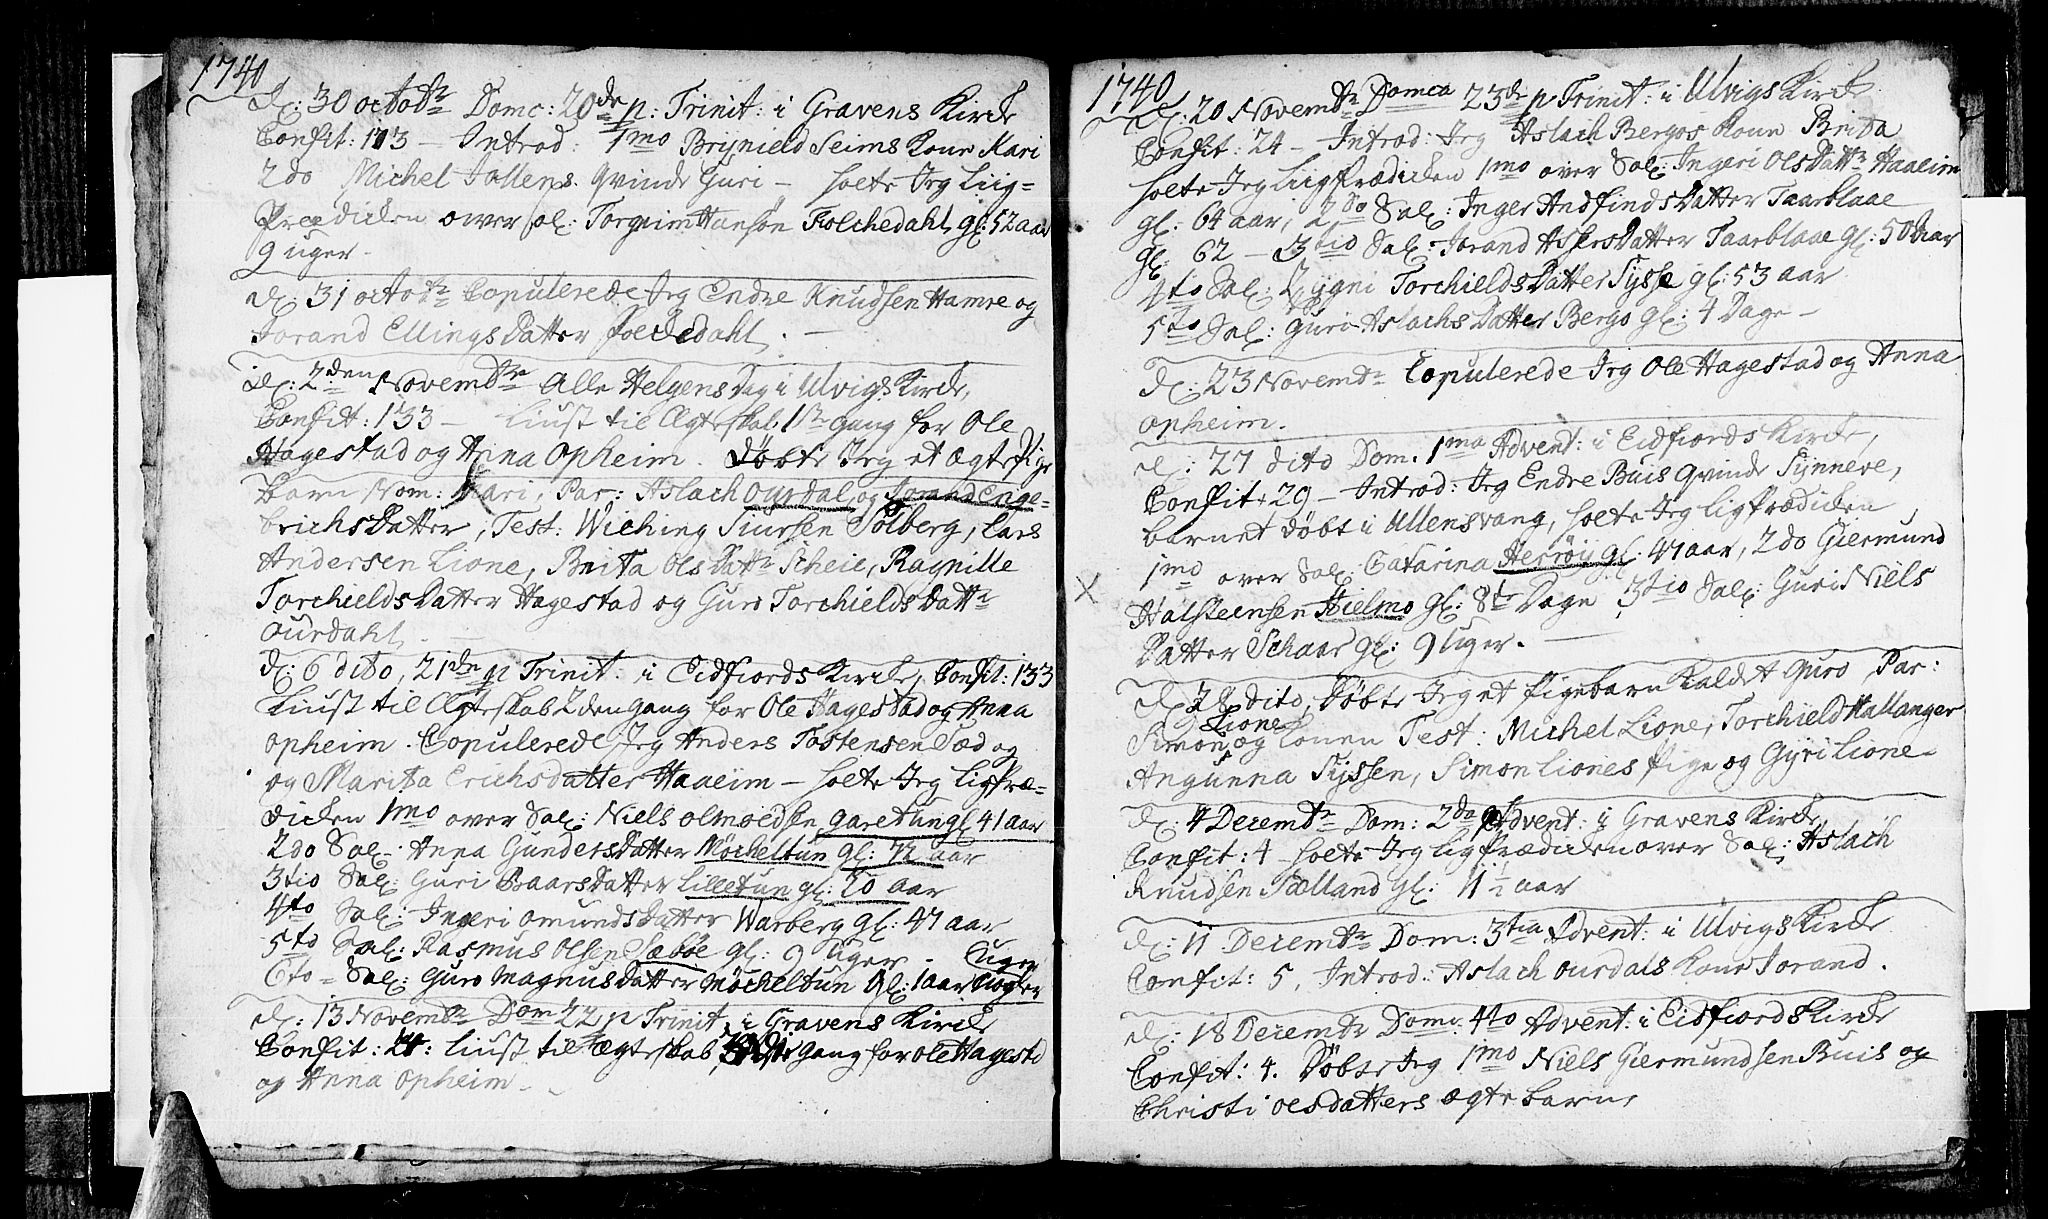 1740
d: 30 octobr Domc: 20de p: Trinit: i Gravens Kirke
Confit: 113 — Introd: 1mo Brynield Seims Kone Mari
2do Michel Jallens Qvinde Guri — holte Jeg Liig-
Prædicken over sl: Torgeim Hansøn Folchedahl gl: 52 aar
9 uger.
d: 31 octobr Copulerede Jeg Endre Knudsen Hamre og
Jorand Ellings Datter Folckedahl. —
d: 2den Novembr Alle Helgens Dag i Ulvigs Kirke,
Confit: 133 — Liust til Ægteskab 1ste gang for Ole
Hagestad og Anna Opheim. Døbte Jeg et Ægte Pige
barn Nom: Mari, Par: Aslach Ourdal og Jorand Enge-
brichs Datter, Test: Wiching Siursen Tolberg, Lars
Andersen Lione, Brita Ols Dattr Scheie, Ragnille
Torchields Datter Hagestad og Guro Torchields Dattr
Ourdahl. —
d: 6 dito, 21de p Trinit: i Eidfiords Kirke, Confit: 133
Liust til Ægteskab 2den gang for Ole Hagestad og Anna
Opheim. Copulerede Jeg Anders Tostensen Sæd og
og Marita Erichsdatter Haaeim — holte Jeg Ligfræ-
dicken 1mo over Sal: Niels Olmoedsen Garetun gl 41 aar
2do Sal: Anna Gunders Datter Møcheltun gl: 72 aar
3tio Sal: Guri Baars Datter Lilletun gl: 70 aar
4to Sal: Ingeri Omunds Datter Warberg gl: 47 aar
5to Sal: Rasmus Olsen Sæbøe gl: 9 uger — uger
6to — Sal: Guro Magnus Datter Møcheltun gl: 1 aar
d: 13 Novembr Dom 22 p Trinit, i Gravens Kirke
Confit: 24: Liust til Ægteskab 3die gang for Ole Hagesta
og Anna Opheim —
1740
d: 20 Novembr Domca 23de p Trinit: i Ulvigs Kirke
Confit: 24 — Introd: Jeg Aslach Bergos Kone Brita
holte Jeg Liigprædicken 1mo over Sal: Ingeri Ols Dattr Haaeim
gl: 64 aar, 2do Sal: Inger Andfinds Datter Taarblaae
gl: 62 — 3tio Sal: Jorand Aspers Datter Taarblaae gl: 50 aar
4to Sal: Torchields Datter Sysse gl: 53 aar
5to Sal: Guri Aslachs Datter Bergo gl: 4 Dage —
d: 23 Novembr Copulerede Jeg Ole Hagestad og Anna
Opheim.
d: 27 dito Dom. 1ma Advent: i Eidfiords Kirke,
Confit: 29 — Introd: Jeg Endre Buis Qvinde Synneve,
barnet døbt i Ullensvang, holte Jeg ligprædicken
1mo over Sal: Catarina Herrøy gl: 47 aar, 2do Giermund
X Halsteensen Hielmo gl: 8te Dage, 3tio Sal: Guri Niels
Datter Schaar gl: 9 uger. —
d: 28 dito, Døbte Jeg et Pigebarn Kaldet Guro, Par:
Simon Lione og Konen Test: Michel Lione, Torchield Hallanger
Angunna Syssen, Simon Liones Pige og Gyri Lione —
d: 4 Decembr Dom: 2da Advent: i Gravens Kirke,
Confit: 4 — holte Jeg ligprædicken over Sal: Aslach
Knudsen Sælland gl: 11 1/2 aar
d: 11 Decembr Dom: 3tia Advent: i Ulvigs Kirke
Confit: 5, Introd: Aslach Ourdals Kone Jorand.
d: 18 Decembr Domc: 4to Advent: i Eidfiords Kirke
Confit: 4. Døbte Jeg 1mo Niels Giermundsen Buis og
Christi Olsdatters ægte barn,